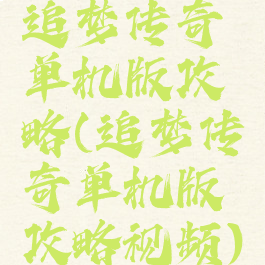 追梦传奇
单机版攻
略(追梦传
奇单机版
攻略视频)